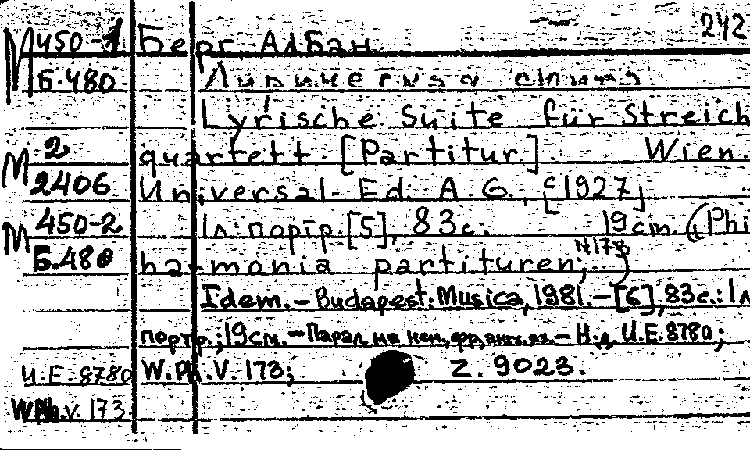 242
М 450-1 Берг Албан
Б.480 Лирическая сюита
Lyrische Suite für Streich
М 2 quartett. [Partitur]. Wien.
2406 Universal-Ed. A. G., [c1927]
М 450-2 1л. портр. [5], 83с. 19cm. (Phi
Б.480 harmonia partituren; N178)
Idem. – Budapest: Musica, 1981. – [6], 83с.: 1л
портр.; 19см. – Парал. на нем., яз. – Н.д. U.E. 8780;
U.E. 8780 W.Ph.V. 173; Z. 9023.
W.Ph.V. 173